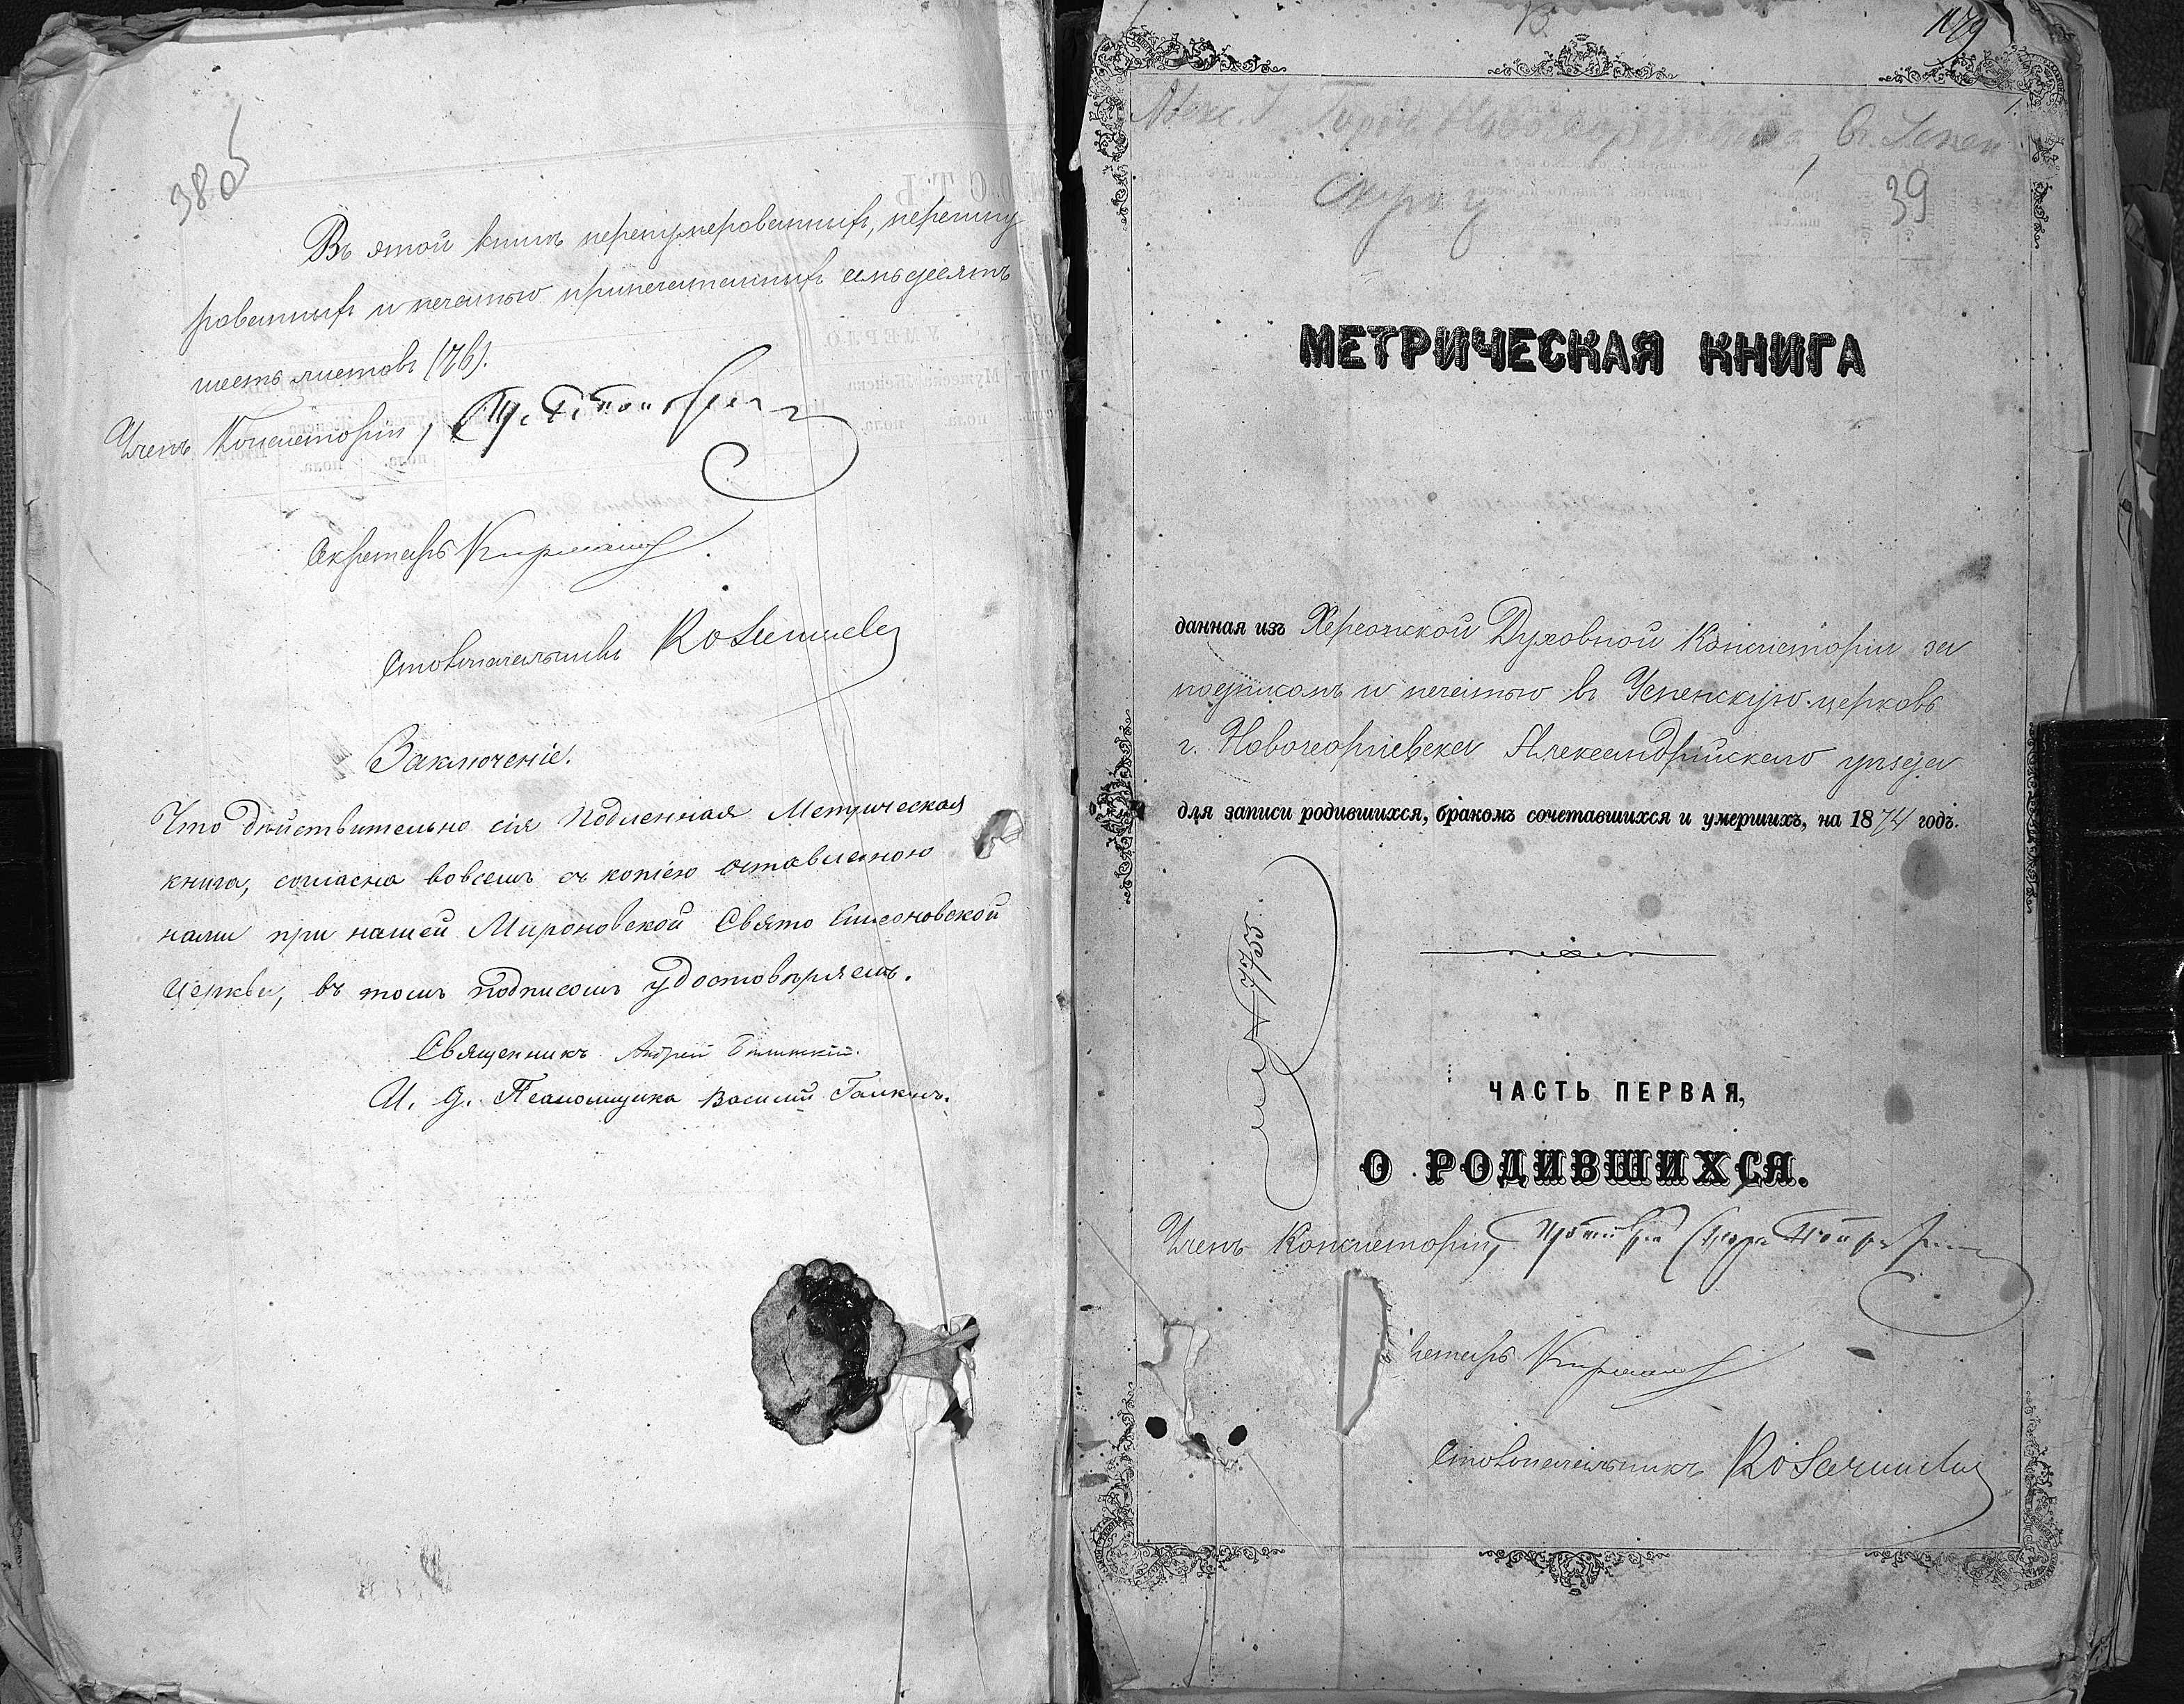 38 об
Въ этой книгѣ перенумерованныхъ, перешну
рованныхъ и печатью припечатанныхъ семьдесятъ
шесть листовъ (76).
Членъ Консисторіи,
Секретарь
Столоначальникъ
Заключеніе.
Что дѣйствительно сія подленная Метрическая
книга, согласна вовсемъ съ копіею оставленою
нами при нашей Мироновской Свято
Церкви, въ томъ подписомъ удостовѣряемъ.
Священникъ Андрей
И. д. Псаломщика Василій Галкинъ.
39
МЕТРИЧЕСКАЯ КНИГА
данная изъ Херсонской Духовной Консисторіи за
подписомъ и печатью въ Успенскую церковь
г. Новогеоргіевска Александрійскаго уѣзда
для записи родившихся, бракомъ сочетавшихся и умершихъ, на 1874 годъ.
7755
ЧАСТЬ ПЕРВАЯ,
О РОДИВШИХСЯ.
Членъ Консисторіи,
Столоначальникъ